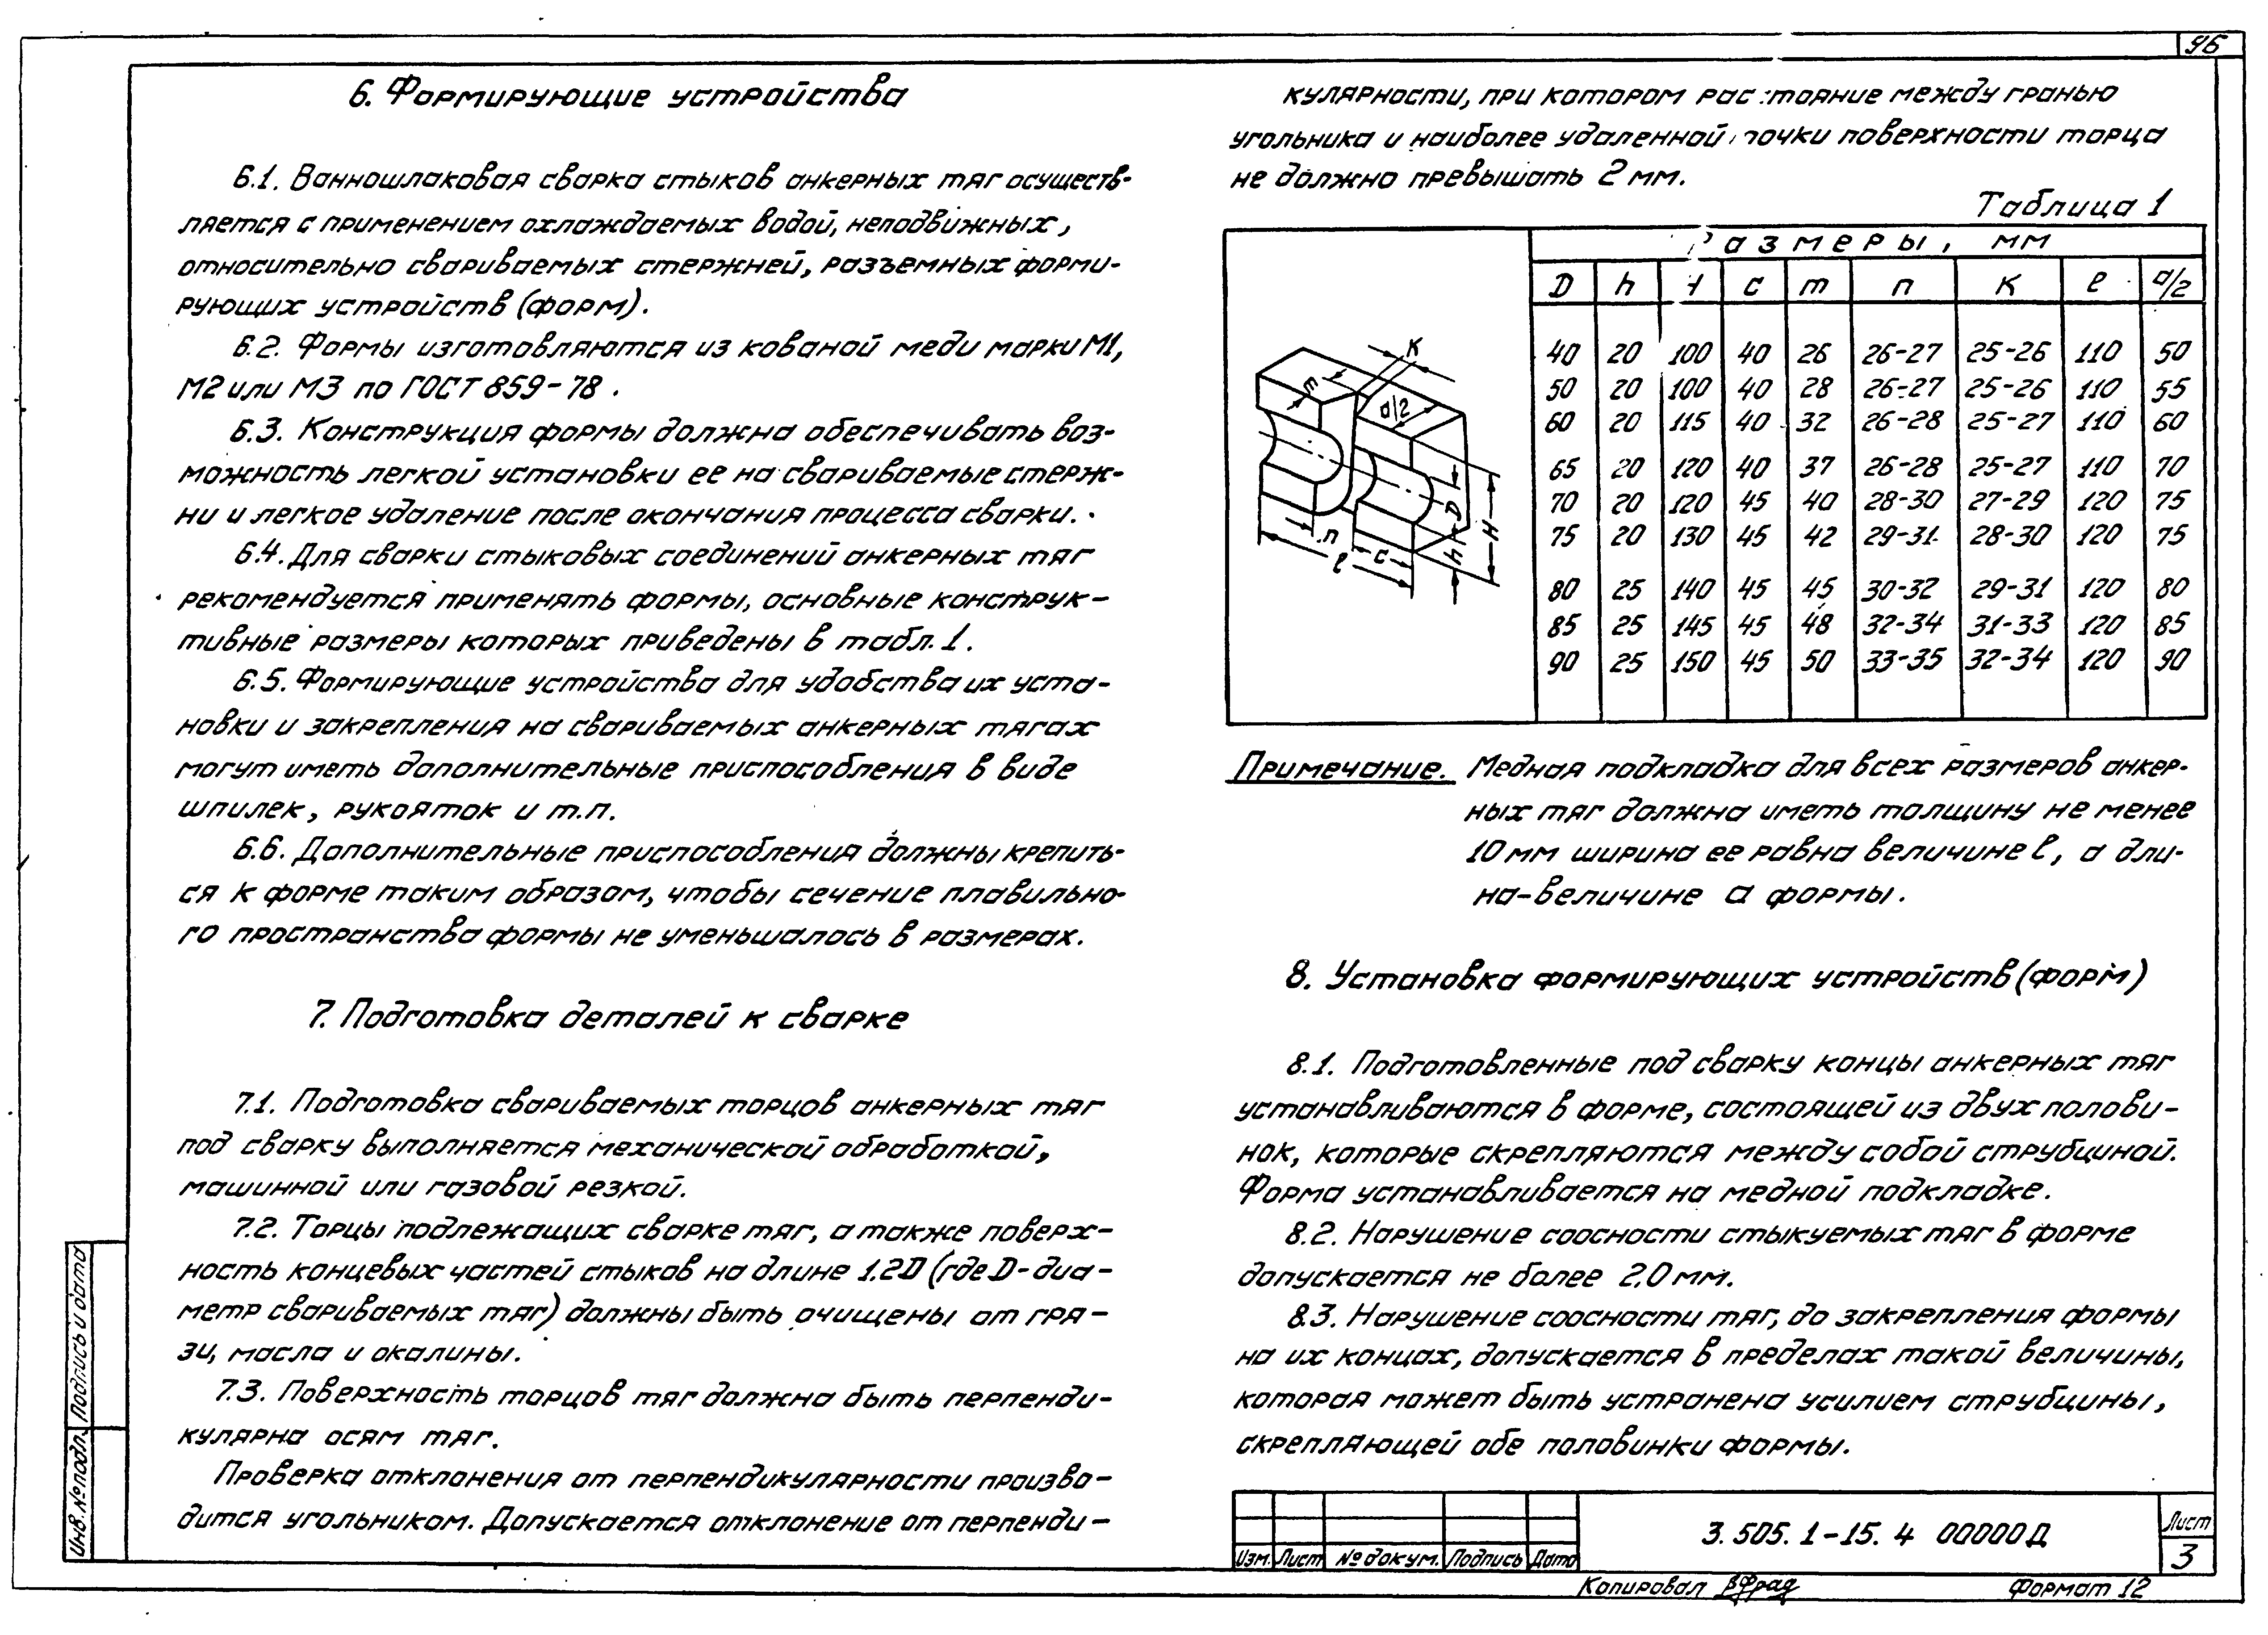 46
6. Формирующие устройства
6.1. Ванношлаковая сварка стыков анкерных тяг осуществ-
ляется с применением охлаждаемых водой, неподвижных,
относительно свариваемых стержней, разъемных форми-
рующих устройств (форм).
6.2. Формы изготовляются из кованой меди марки М1,
М2 или М3 по ГОСТ 859-78.
6.3. Конструкция формы должна обеспечивать воз-
можность легкой установки ее на свариваемые стерж-
ни и легкое удаление после окончания процесса сварки.
6.4. Для сварки стыковых соединений анкерных тяг
рекомендуется применять формы, основные конструк-
тивные размеры которых приведены в табл. 1.
6.5. Формирующие устройства для удобства их уста-
новки и закрепления на свариваемых анкерных тягах
могут иметь дополнительные приспособления в виде
шпилек, рукояток и т.п.
6.6. Дополнительные приспособления должны крепить-
ся к форме таким образом, чтобы сечение плавильно-
го пространства формы не уменьшалось в размерах.
7. Подготовка деталей к сварке
7.1. Подготовка свариваемых торцов анкерных тяг
под сварку выполняется механической обработкой,
машинной или газовой резкой.
7.2. Торцы подлежащих сварке тяг, а также поверх-
ность концевых частей стыков на длине 1.2D (где D-диа-
метр свариваемых тяг) должны быть очищены от гря-
зи, масла и окалины.
7.3. Поверхность торцов тяг должна быть перпенди-
кулярна осям тяг.
Проверка отклонения от перпендикулярности произво-
дится угольником. Допускается отклонение от перпенди-
кулярности, при котором расстояние между гранью
угольника и наиболее удаленной точки поверхности торца
не должно превышать 2 мм.
Таблица 1
Размеры, мм
D h H c m n K ℓ a/2
40 20 100 40 26 26-27 25-26 110 50
50 20 100 40 28 26-27 25-26 110 55
60 20 115 40 32 26-28 25-27 110 60
65 20 120 40 37 26-28 25-27 110 70
70 20 120 45 40 28-30 27-29 120 75
75 20 130 45 42 29-31 28-30 120 75
80 25 140 45 45 30-32 29-31 120 80
85 25 145 45 48 32-34 31-33 120 85
90 25 150 45 50 33-35 32-34 120 90
K
m
a/2
D
H
n
c
h
ℓ
Примечание. Медная подкладка для всех размеров анкер-
ных тяг должна иметь толщину не менее
10 мм ширина ее равна величине ℓ, а дли-
на-величине a формы.
8. Установка формирующих устройств (форм)
8.1. Подготовленные под сварку концы анкерных тяг
устанавливаются в форме, состоящей из двух полови-
нок, которые скрепляются между собой струбциной.
Форма устанавливается на медной подкладке.
8.2. Нарушение соосности стыкуемых тяг в форме
допускается не более 2.0 мм.
8.3. Нарушение соосности тяг, до закрепления формы
на их концах, допускается в пределах такой величины,
которая может быть устранена усилием струбцины,
скрепляющей обе половинки формы.
Инв.№ подл. Подпись и дата
Изм. Лист № докум. Подпись Дата
3.505.1-15.4 00000Д
Лист
3
Копировал
Формат 12